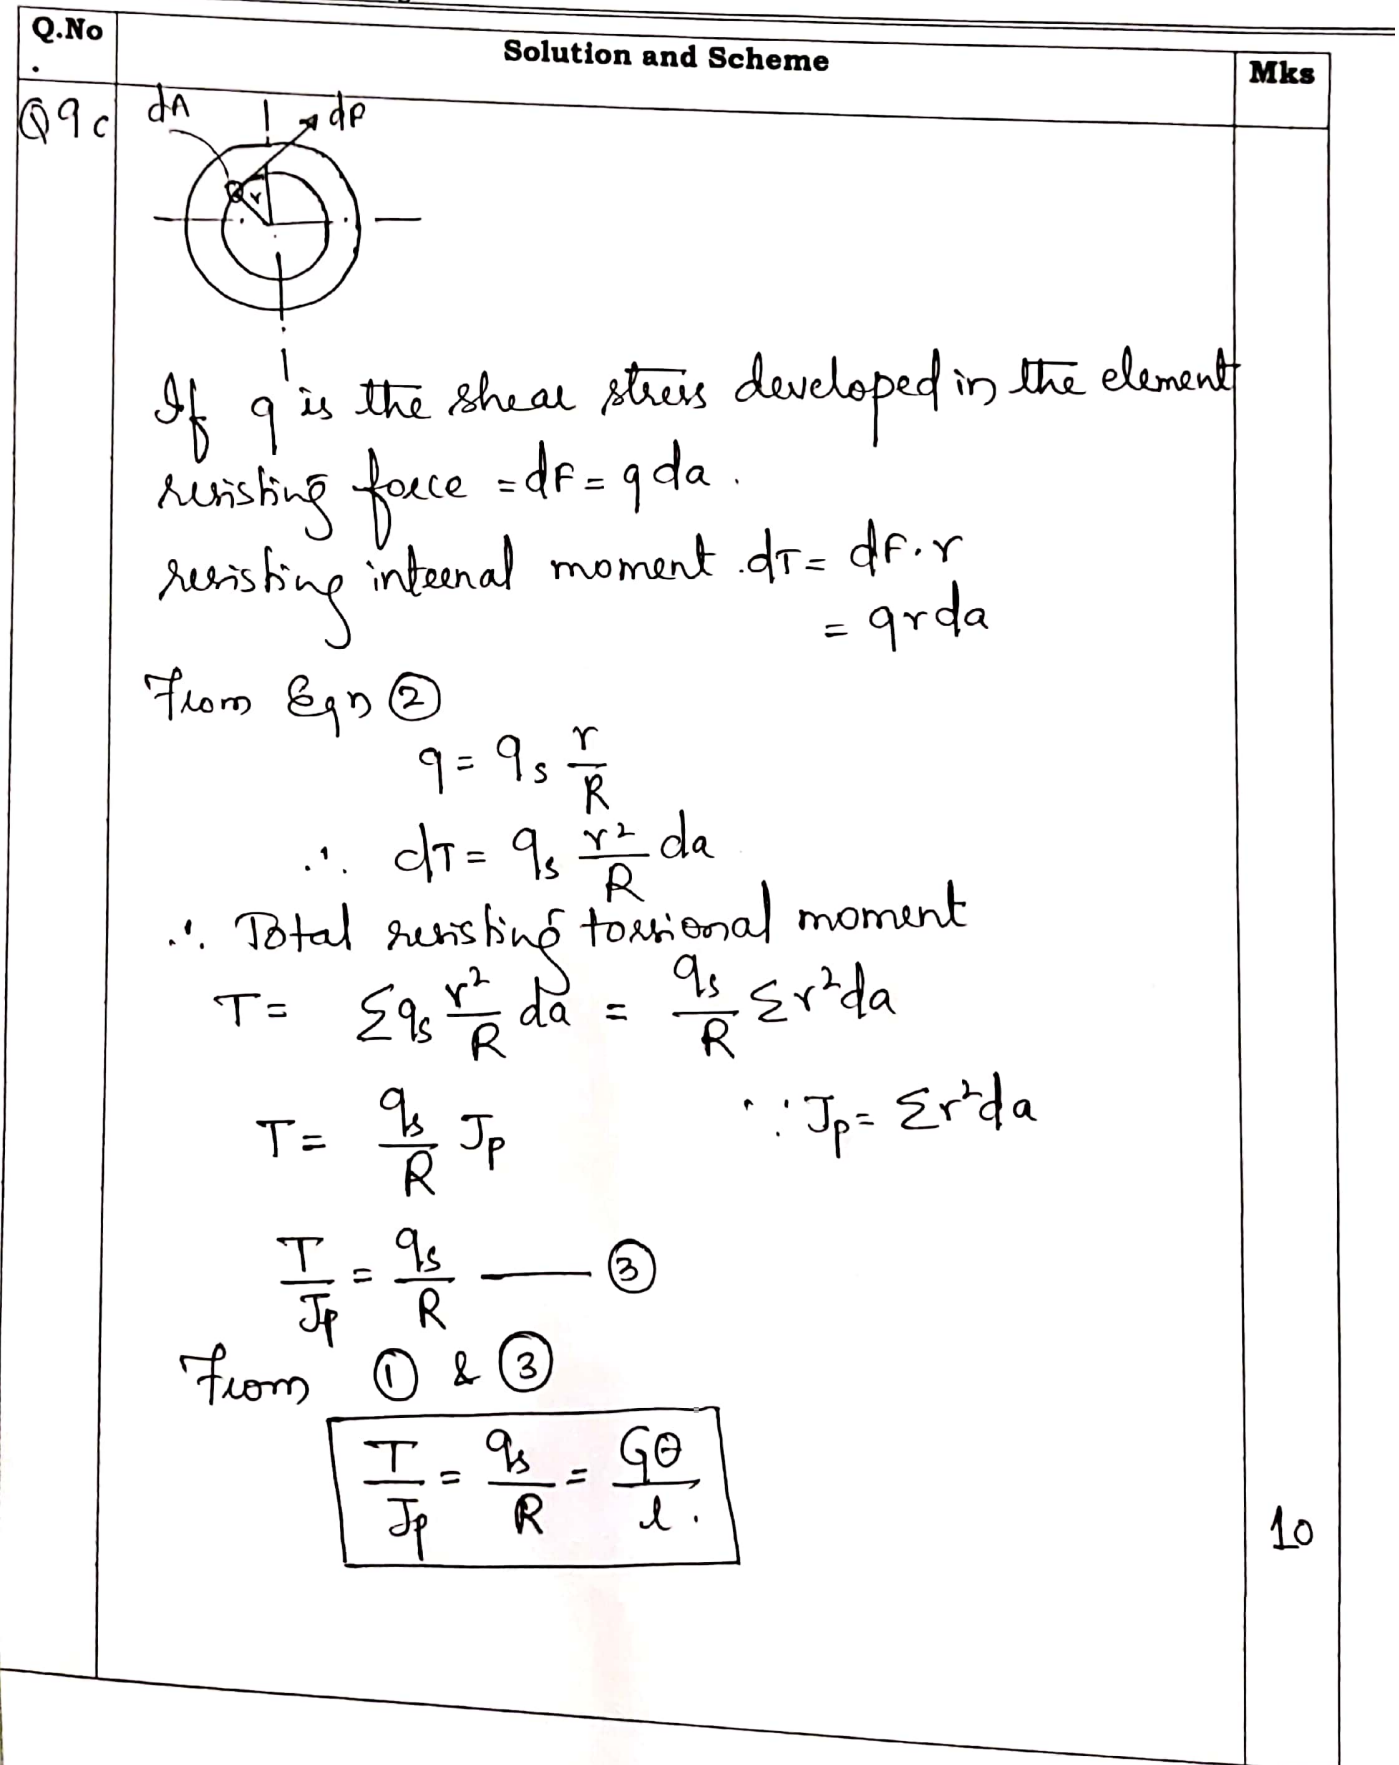 Q.No
.
Solution and Scheme
Mks
Q9c
dA
dP
r
If q is the shear stress developed in the element
resisting force = dF = q da .
resisting internal moment . dT = dF.r
= qrda
From Eqn ②
q = qs r/R
∴ dT = qs r²/R da
∴ Total resisting torsional moment
T = Σqs r²/R da = qs/R Σr²da
T = qs/R Jp ∵ Jp = Σr²da
T/Jp = qs/R —— ③
From ① & ③
T/Jp = qs/R = Gθ/l .
10